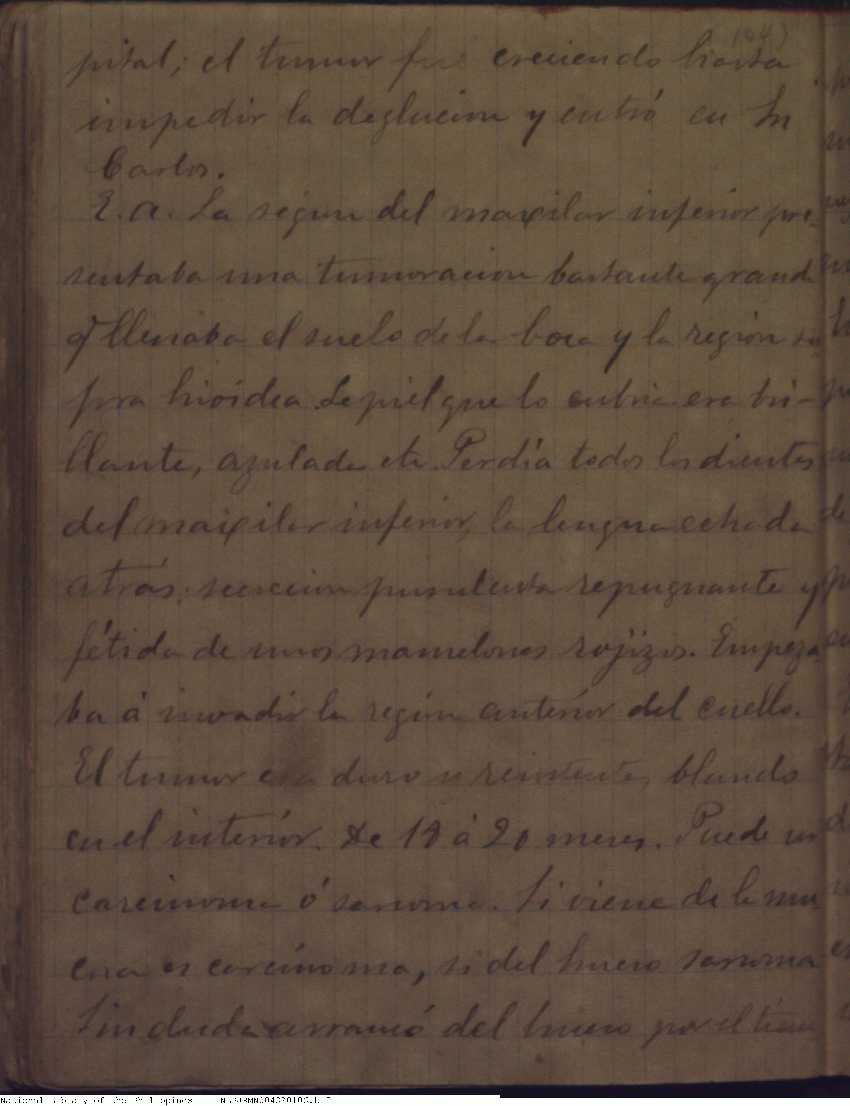 (104)
pital; el tumor fué creciendo hasta
impedir la deglucion y entró en Sn
Carlos.
E. a. La región del maxilar inferior pre-
sentaba una tumoracion bastante grande
q̃ llenaba el suelo de la boca y la región su
pra hioidea. La piel que lo cubria era bri-
llante, azulada etc. Perdía todos los dientes
del maxilar inferior, la lengua echada
atrás; secrecion purulenta repugnante y
fétida de unos mamelones rojizos. Empeza
ba á invadir la región anterior del cuello.
El tumor era duro y renitente, blando
en el interior. De 18 á 20 meses. Puede ser
carcinoma ó sarcoma. Si viene de la mu
cosa es carcinoma, si del hueso sarcoma
Sin duda arrancó del hueso por el tiem
National Library of the Philippines